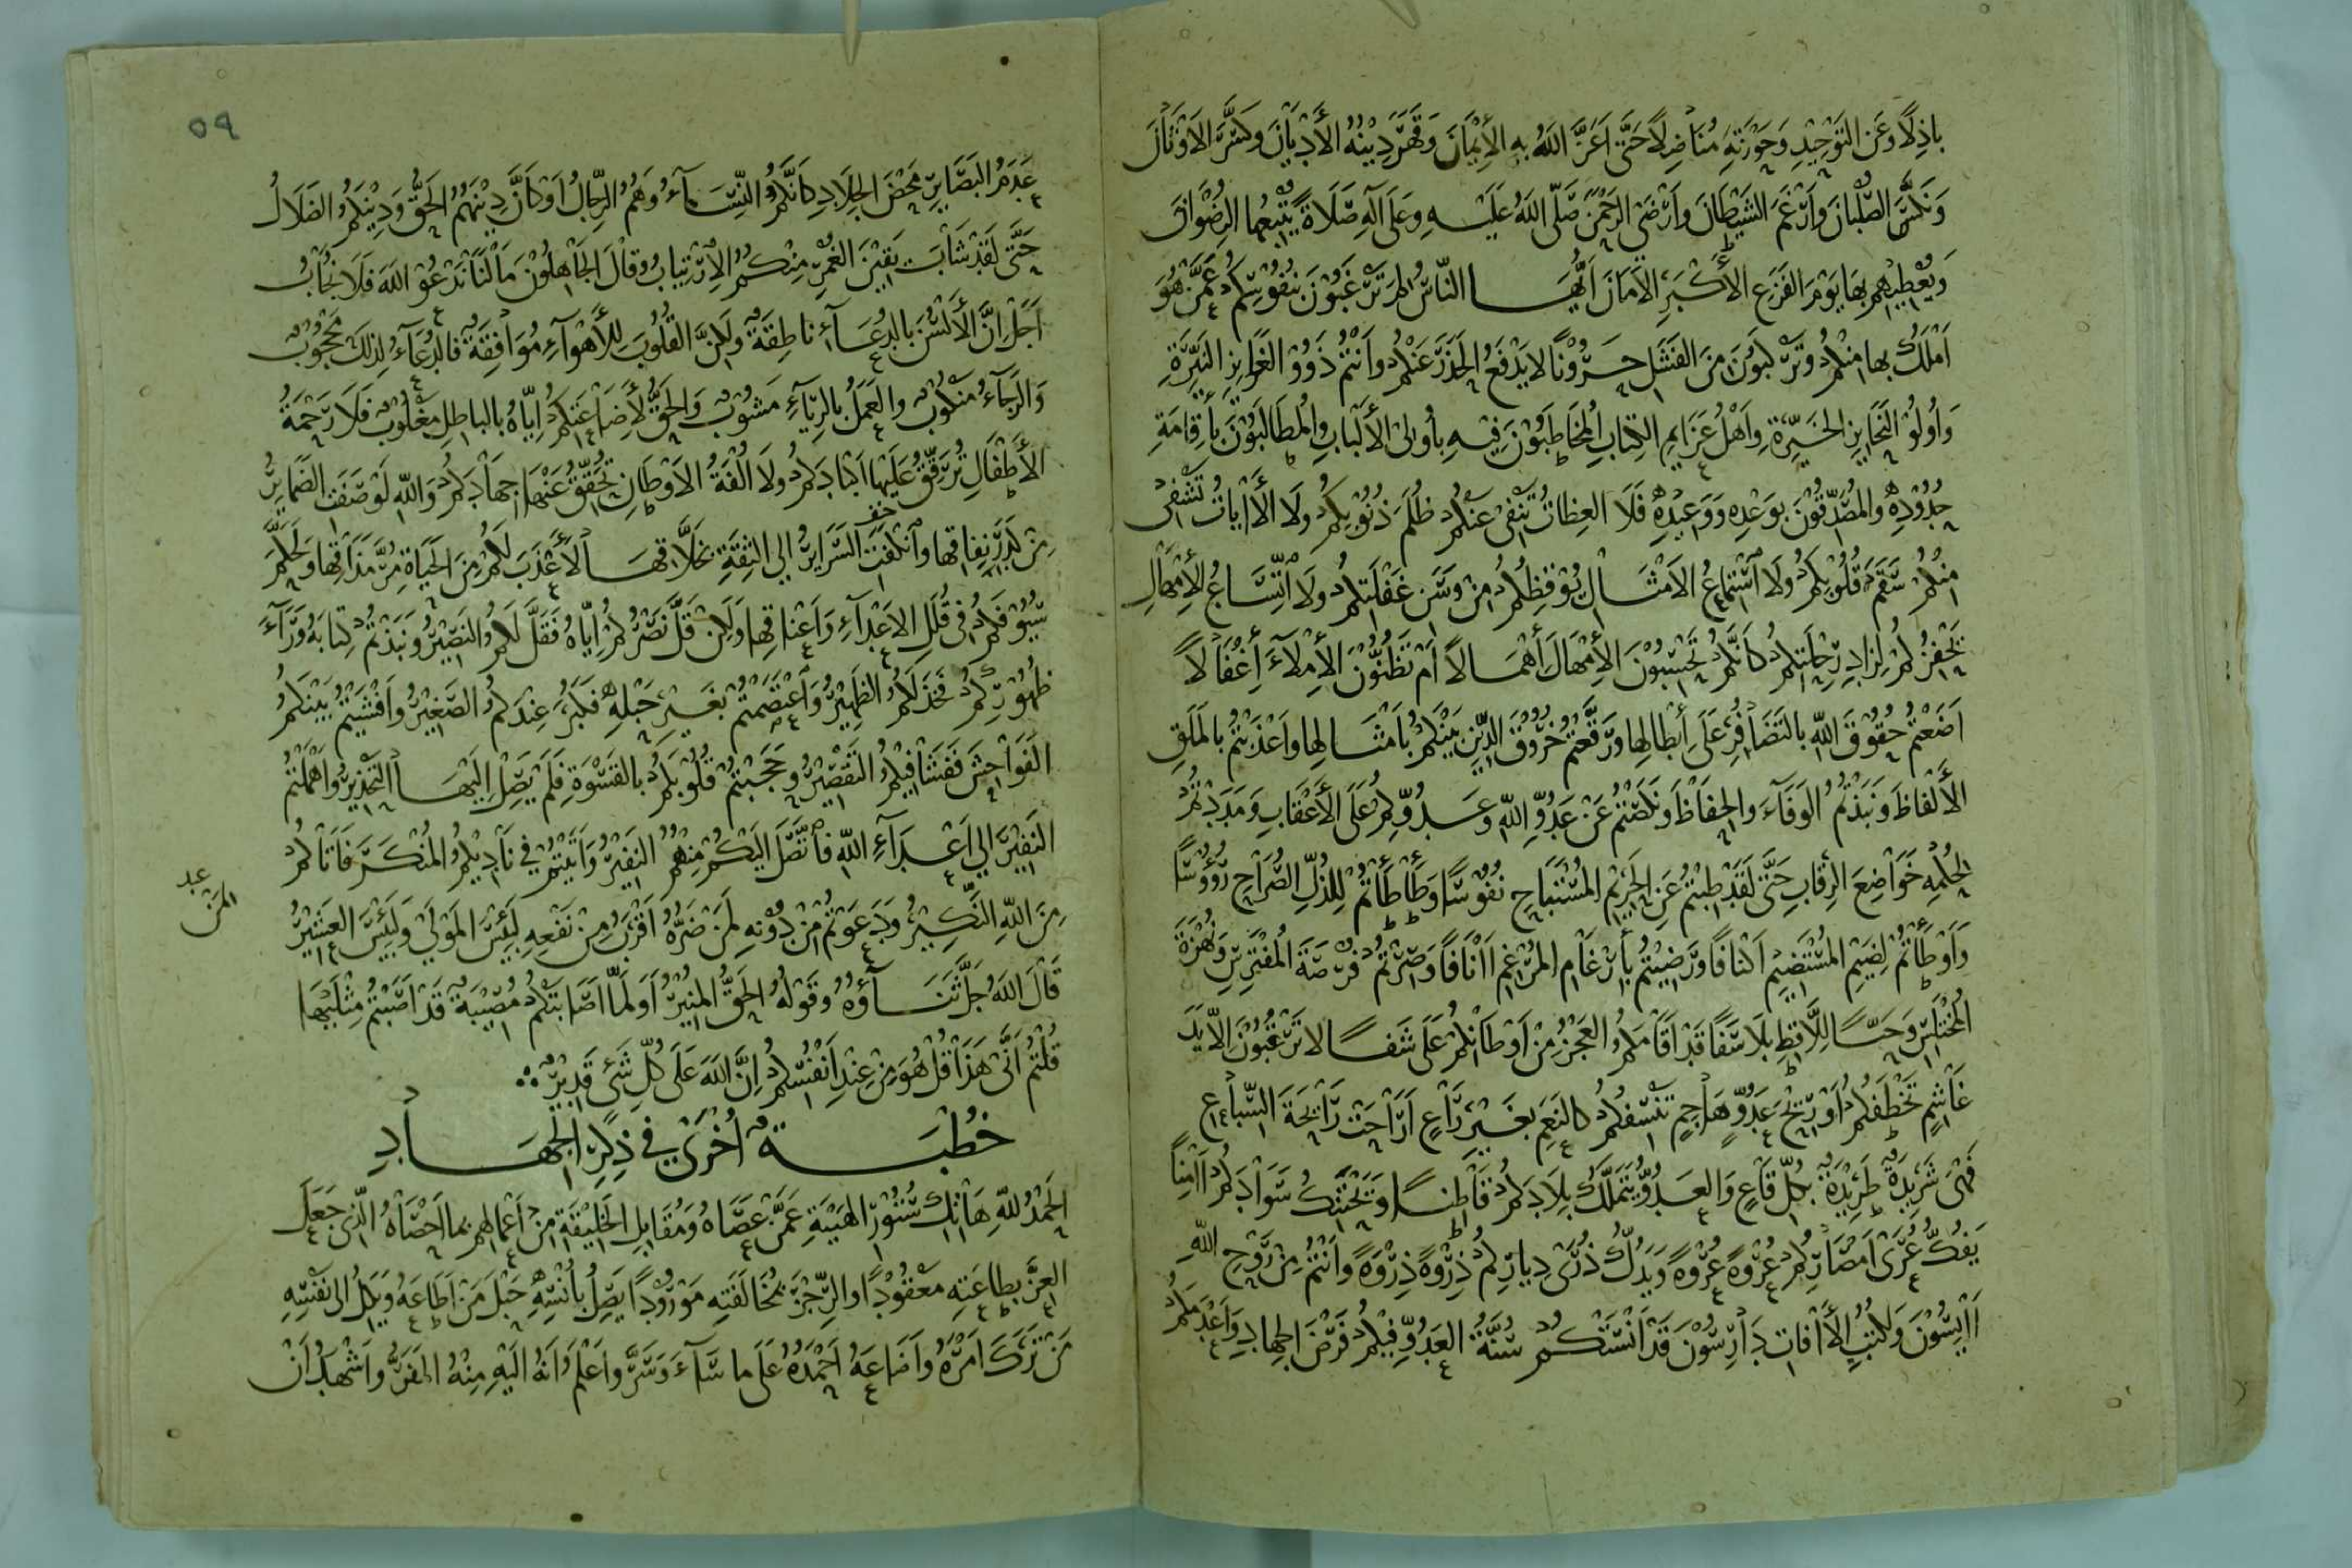 باذِلًا وَعَنِ التَّوْحِيْدِ وَحَوْزَتِهِ مُنَاضِلًا حَتَّى اَعَزَّ اللهُ بِهِ الإِيْمَانَ وَقَهَرَ دِيْنُهُ الأَدْيَانَ وكَسَّرَ الاَوْثَانَ
وَنَكَّسَ الصُّلْبَانَ وأَرْغَمَ الشَيْطَانَ وأَرْضَى الرَحْمٰنَ صَلَّى اللهُ عَلَيْهِ وعَلَى آلِهِ صَلَاةً يُتْبِعُهَا الرِضْوَانَ
وَيُعْطِيْهِم بِهَا يَوْمَ الفَزَعِ الأَكْبَرِ الاَمَانَ اَيُّهَا النَّاسُ لِمَ تَرْغَبُوْنَ بِنُفُوْسِكُمْ عَمَّنْ هُوَ
اَمْلَكُ بها مِنْكُمْ وتَرْكَبُوْنَ مِنَ الفَشَلِ حَرُوْنًا لا يَدْفَعُ الحَذَرَ عَنْكُمْ وأَنْتُمْ ذَوُوْ الغَرَايِزِ النَيِّرَةِ
وَأُولُوْ النَحَايِزِ الخَيِّرَةِ وأَهْلُ عَزَايِمِ الكِتَابِ المُخَاطَبُوْنَ فِيْهِ بِأُولِي الأَلْبَابِ والمُطَالَبُوْنَ بِأِقَامَةِ
حُدُوْدِهِ والمُصَدِّقُوْنَ بوَعْدِهِ وَوَعِيْدِهِ فَلَا العِظَاتُ تَنْفِى عَنْكُمْ ظُلَمَ ذُنُوْبِكُمْ ولَا الآيَاتُ تَشْفِى
مِنْكُمْ سَقَمَ قُلُوْبِكُمْ ولَا اسْتِمَاعُ الاَمْثَالِ يُوْقِظُكُمْ مِنْ وَسَنِ غَفْلَتِكُمْ ولَا اتِّسَاعُ الأِمْهَالِ
يَحْفِزُكُمْ لِزَادِ رِحْلَتِكُمْ كَأَنَّكُمْ تَحْسَبُوْنَ الأِمْهَالَ أِهْمَالًا اَمْ تَظُنُّوْنَ الأِمْلَآءَ أِغْفَالًا
اَضَعْتُمْ حُقُوْقَ اللهِ بالتَضَافُرِ عَلَى أِبْطَالِهَا ورَقَّعْتُمْ خُرُوْقَ الدِّيْنِ بَيْنَكُمْ بأَمْثَالِهَا وأَعْذَبْتُمْ بِالمَلَقِ
الأَلْفَاظَ وَنَبَذْتُمُ الوَفَآءَ والحِفَاظَ ونَكَصْتُمْ عَنْ عَدُوِّ اللهِ وعَدُوِّكُمْ عَلَى الأَعْقَابِ وَمَدَدْتُمْ
لِحُكْمِهِ خَوَاضِعَ الرِقَابِ حَتَّى لَقَدْ طِبْتُمْ عَنِ الحَرِيْمِ المُسْتَبَاحِ نُفُوْسًا وَطَأْطَأْتُمْ لِلذُلِّ الصُرَاحِ رُؤُوْسًا
وَاَوْطَأْتُمْ لِضَيْمِ المُسْتَضِيْمِ اَكْنَافًا ورَضِيْتُمْ بأِرْغَامِ المُرْغِمِ اَنَافًا وَصِرْتُمْ فُرْصَةَ المُفْتَرِسِ وَنُهْزَةَ
المُخْتَلِسِ وَحَبًّا لِلَّاقِطِ بِلَا سَفًا قَدْ اَقَامَكُمُ العَجْزُ مِنْ اَوْطَانِكُمْ عَلَى شَفًا لا تَرْقُبُوْنَ اِلَّا يَدَ
غَاشِمٍ تَخْطَفُكُمْ اَوْ رِيْحَ عَدُوٍّ هَاجِمٍ تَنْسِفُكُمْ كالنَعَمِ بغَيْرِ رَاعٍ اَرَاحَتْ رَايحَةَ السِّبَاعِ
فَهْىَ شَرِيْدَةٌ طَرِيْدَةٌ بكُلِّ قَاعٍ وَالعَدُوُّ يَتَمَلَّكُ بِلَادَكُمْ قَاطِنًا وَيَحْتَنِكُ سَوَادَكُمْ اٰمِنًا
يَفُكُّ عُرَى اَمْصَارِكُمْ عُرْوَةً عُرْوَةً وَيَدُكُّ ذُرَى دِيارِكُمْ ذِرْوَةً ذِرْوَةً وَاَنْتُمْ مِنْ رَوْحِ اللهِ
اٰيِسُوْنَ وَلِكُتُبِ الآفَاتِ دَارِسُوْنَ قَدْ اَنْسَتْكُمْ سُنَّةُ العَدُوِّ فِيْكُمْ فَرْضَ الجِهَادِ وَاَعْدَمَكُمْ
٥٩
عَدَمُ البَصَايِرِ مَحْضَ الجِلَادِ كَاَنَّكُمُ النِّسَآءُ وَهُمُ الرِّجَالُ اَوْ كَاَنَّ دِيْنَهُمُ الحَقُّ وَدِيْنَكُمُ الضَلَالُ
حَتَّى لَقَدْ شَابَتْ يَقِيْنَ الغُمْرِ مِنْكُمُ الاِرْتِيَابُ وقَالَ الجَاهِلُوْنَ مَالَنَا نَدْعُوْ اللهَ فَلَا نُجَابُ
اَجَلْ اِنَّ الأَلْسُنَ بالدُعَآءِ ناطِقَةٌ ولٰكِنَّ القُلُوْبَ للأَهْوَآءِ مُوَافِقَةٌ فالدُعَآءُ لِذٰلِكَ مَحْجُوْبٌ
وَالرَجَآءُ مَنْكُوْبٌ والعَمَلُ بالرِيَآءِ مَشُوْبٌ وَالحَقُّ لأِضَاعَتِكُمْ اِيَّاهُ بالبَاطِلِ مَغْلُوْبٌ فَلَا رَحْمَةُ
الأَطْفَالِ تُرَقِّقُ عَلَيْهَا اَكْبَادَكُمْ ولَا اُلْفَةُ الاَوْطَانِ تُحَقِّقُ عَنْهَا جِهَادَكُمْ وَاللهِ لَوْ صَفَتِ الضَمَايِرُ
مِنْ كَدَرِ نِفَاقِهَا وانْكَفَتِ السَرَايِرُ الى الثِقَةِ بخَلَّاقِهَا لأَعْذَبَ لَكُمْ مِنَ الحَيَاةِ مُرَّ مَذَاقِهَا وَلَحَكَّمَ
سُيُوْفَكُمْ فى قُلَلِ الاَعْدَآءِ وَاَعْنَاقِهَا وَلٰكِنْ قَلَّ نَصْرُكُمْ اِيَّاهُ فَقَلَّ لَكُمُ النَصِيْرُ ونَبَذْتُمْ كِتَابَهُ وَرَآءَ
ظُهُوْرِكُمْ فَخَذَلَكُمُ الظَهِيْرُ وَاعْتَصَمْتُمْ بغَيْرِ حَبْلِهِ فَكَبُرَ عِنْدَكُمُ الصَغِيْرُ وأَفْشَيْتُمْ بَيْنَكُمُ
الفَوَاحِشَ فَفَشَا فِيْكُمُ التَقْصِيْرُ وحَجَبْتُمْ قُلُوْبَكُمْ بالقَسْوَةِ فَلَمْ يَصِلْ اِلَيْهَا التَحْذِيْرُ وأَهْمَلْتُمُ
النَفِيْرَ الى اَعْدَآءِ اللهِ فاتَّصَلَ اليكُمْ مِنْهُمُ النَفِيْرُ وَاَتَيْتُمْ في نَادِيْكُمُ المُنْكَرَ فَاَتَاكُمْ
مِنَ اللهِ النَكِيْرُ وَدَعَوْتُمْ مِنْ دُوْنِهِ لَمَنْ ضَرُّهُ اَقْرَبُ مِنْ نَفْعِهِ لَبِئْسَ المَوْلَى وَلَبِئْسَ العَشِيْرُ
قَالَ اللهُ جَلَّ ثَنَآؤُهُ وَقَوْلُهُ الحَقُّ المُنِيْرُ اَوَلَمَّا اَصَابَتْكُمْ مُصِيْبَةٌ قَدْ اَصَبْتُمْ مِثْلَيْهَا
قُلْتُمْ اَنَّى هَذَا قُلْ هُوَ مِنْ عِنْدِ اَنْفُسِكُمْ اِنَّ اللهَ عَلَى كُلِّ شَيْءٍ قَدِيْرٌ ∴
خُطْبَةٌ اُخْرَى فى ذِكْرِ الجِهَادِ
الحَمْدُ للهِ هَاتِكِ سُتُوْرِ الهَيْبَةِ عَمَّنْ عَصَاهُ وَمُقَابِلِ الخَلِيْقَةِ مِنْ اَعْمَالِهِمْ بمَا اَحْصَاهُ الَّذِى جَعَلَ
العِزَّ بِطَاعَتِهِ مَعْقُوْدًا والرِّجْزَ بمُخَالَفَتِهِ مَوْرُوْدًا يَصِلُ بأُنْسِهِ حَبْلَ مَنْ اَطَاعَهُ وَيَكِلُ الى نَفْسِهِ
مَنْ تَرَكَ اَمْرَهُ وأَضَاعَهُ اَحْمَدُهُ عَلَى ما سَآءَ وَسَرَّ واَعْلَمُ اَنَّهُ الَيْهِ مِنْهُ المَفَرُّ واَشْهَدُ اَنْ